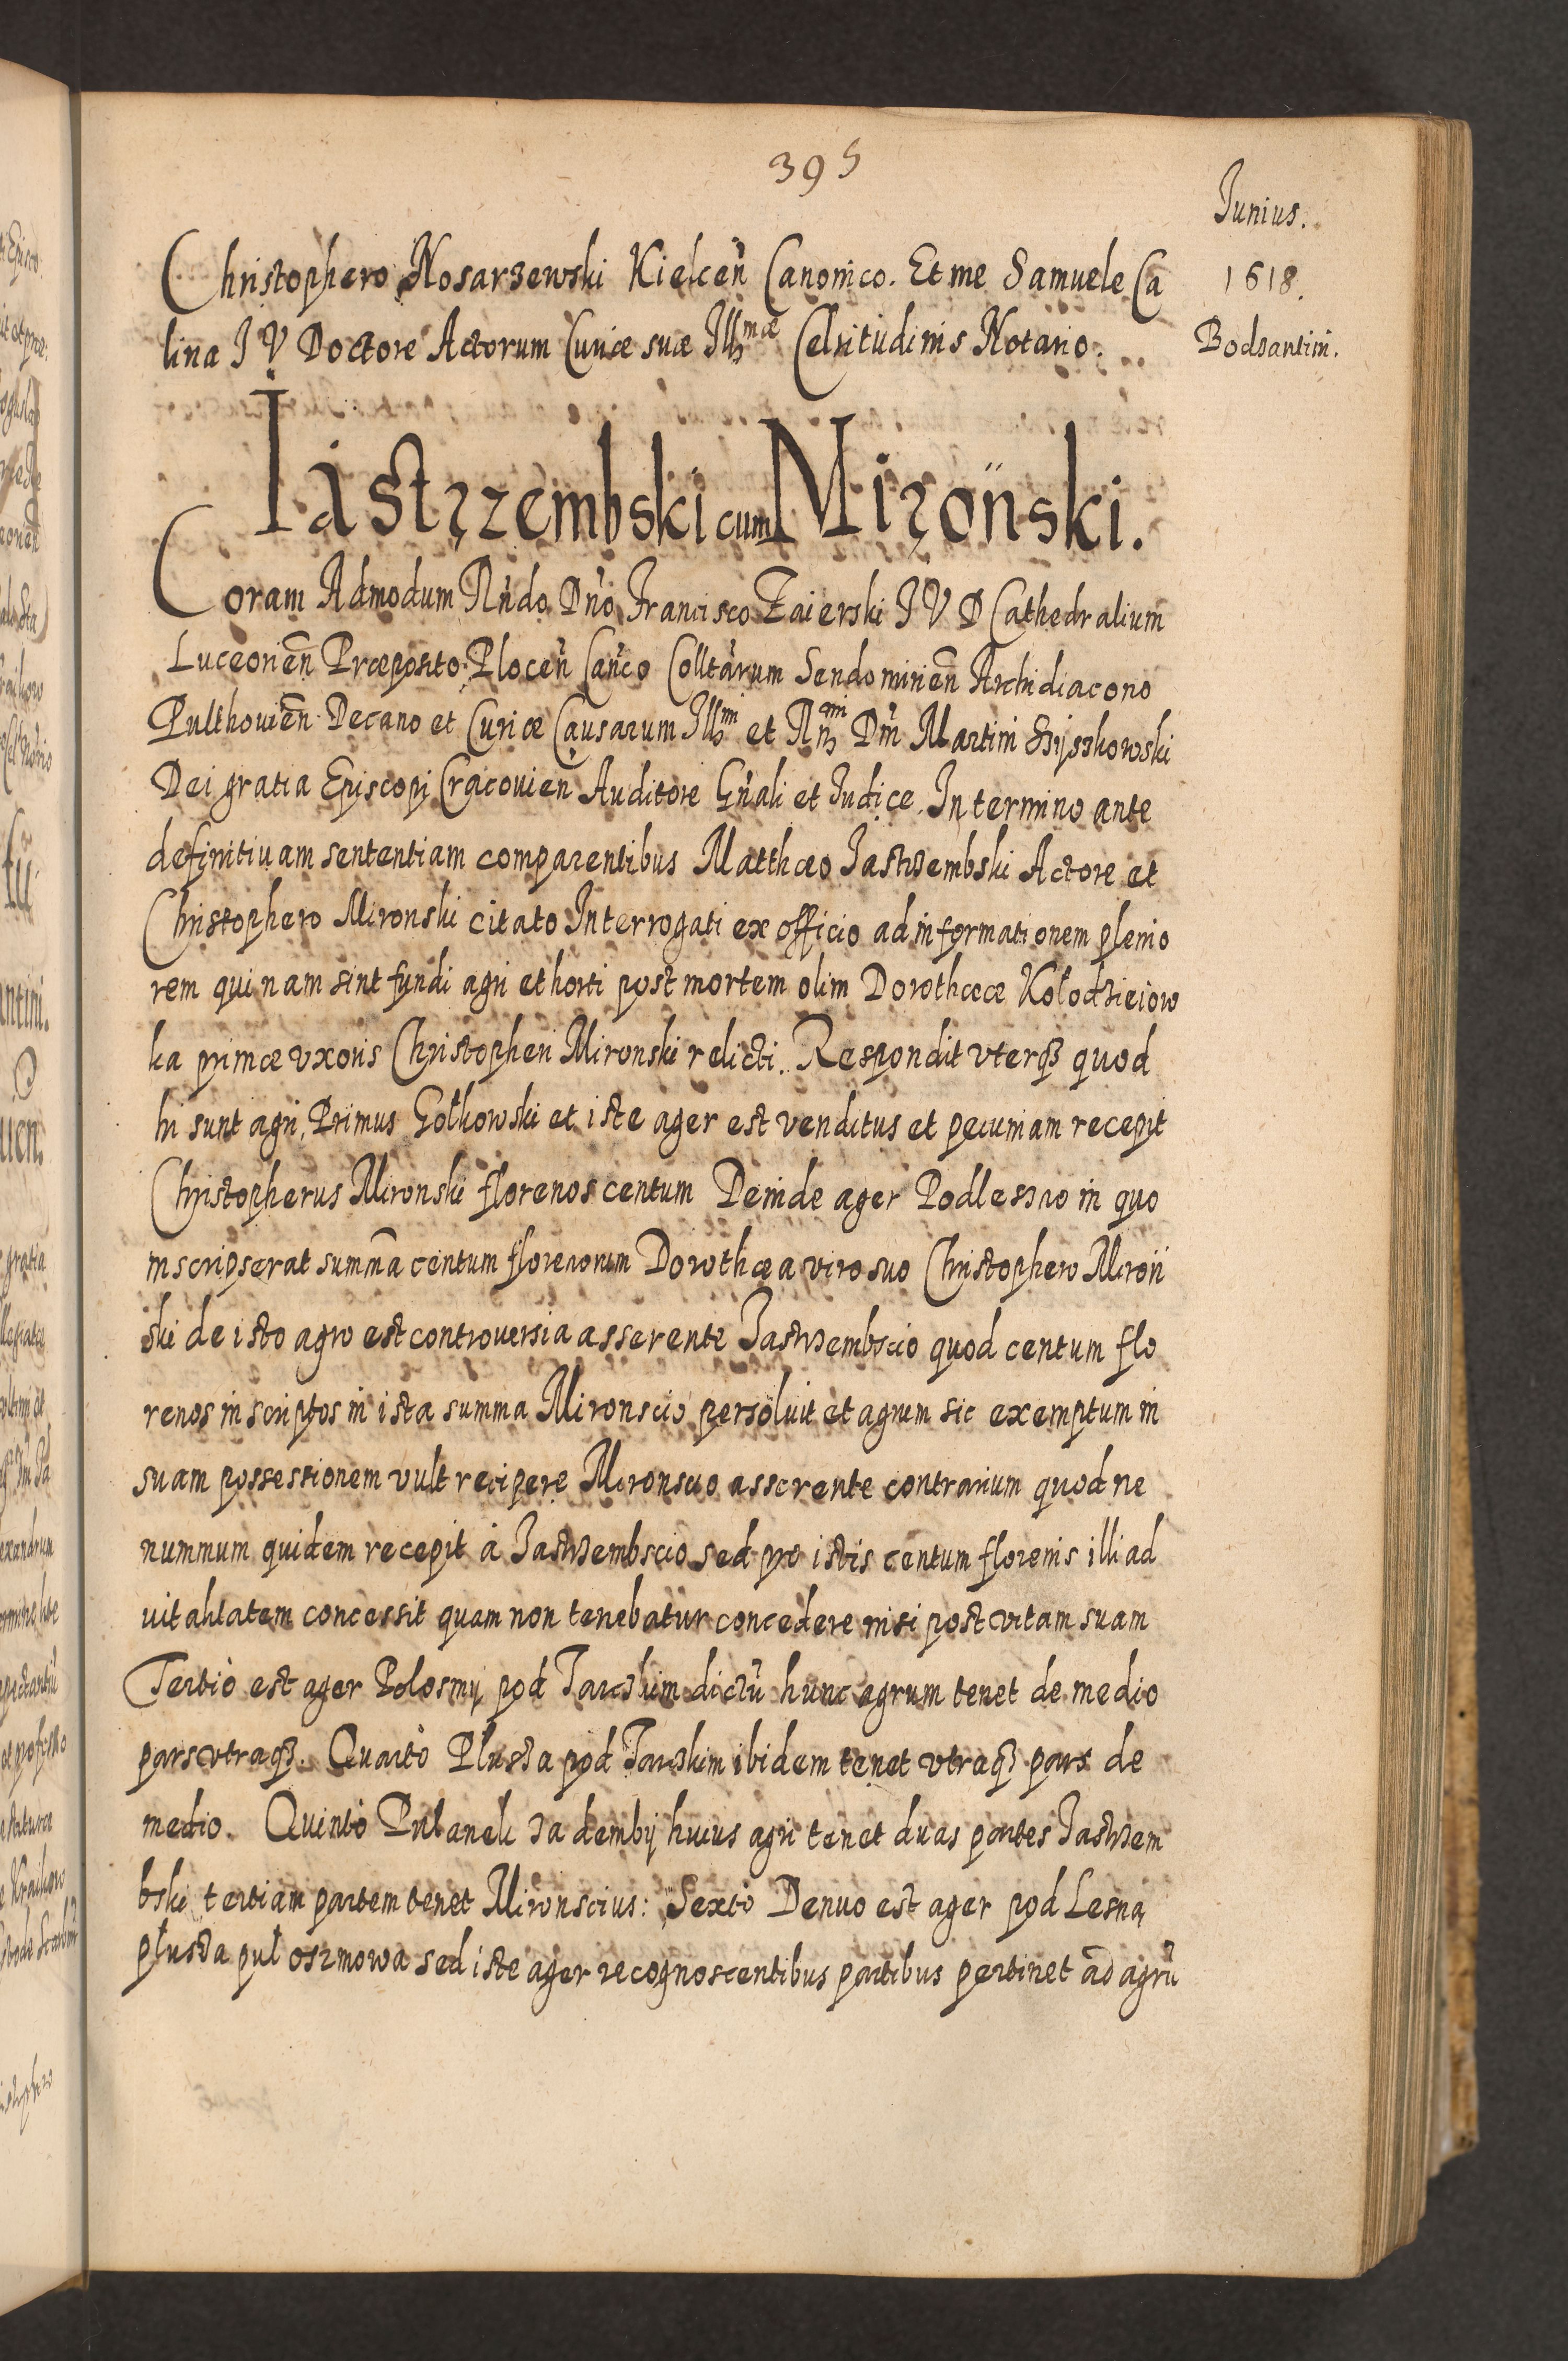 395
Junius.
1618.
Bodzantini.
Christophero Nosarzewski Kielceñ Canonico. Et me Samuele Ca
lina J V Doctore Actorum Curiæ suæ Illmæ Celsitudinis Notario.
Iastrzembski cum Mironski.
Coram Admodum Rñdo Dño Francisco Zaierski J V D Cathedralium
Luceorieñ Præposito Ploceñ Cañco Colltarum Sendomirieñ Archidiacono
Pulthouieñ Decano et Curiæ Causarum Illmi et Rmi Dni Martini Szyszkowski
Dei gratia Episcopi Cracouieñ Auditore Gñali et Iudice. In termino ante
definitiuam sententiam comparentibus Matthæo Jastrzembski Actore et
Christophero Mironski citato Interrogati ex officio ad informationem plenio
rem qui nam sint fundi agri et horti post mortem olim Dorotheæ Kołodzieiow
ka primæ vxoris Christopheri Mironski relicti. Respondit vterq3 quod
hi sunt agri, Primus Gołkowski et iste ager est venditus et pecuniam recepit
Christopherus Mironski florenos centum Deinde ager Podleszno in quo
inscripserat summa centum florenorum Dorothæa viro suo Christophero Miroń
ski de isto agro est controuersia asserente Jastrzembscio quod centum flo
renos inscriptos in ista summa Mironscio persoluit et agrum sic exemptum in
suam possessionem vult recipere Mironscio asserente contrarium quod ne
nummum quidem recepit à Jastrzembscio sed pro istis centum florenis illi ad
uitalitatem concessit quam non tenebatur concedere nisi post vitam suam
Tertiò est ager Polosmy pod Tarczkim dictũ hunc agrum tenet de medio
pars vtraq3. Quartò Płusza pod Tarczkim ibidem tenet vtraq3 pars de
medio. Quintò Pulanek za demby huius agri tenet duas partes Jastrzem
bski tertiam partem tenet Mironscius: Sextò Denuo est ager pod Lesną
płusza puł oszmowa sed iste ager recognoscentibus partibus pertinet ad agrũ